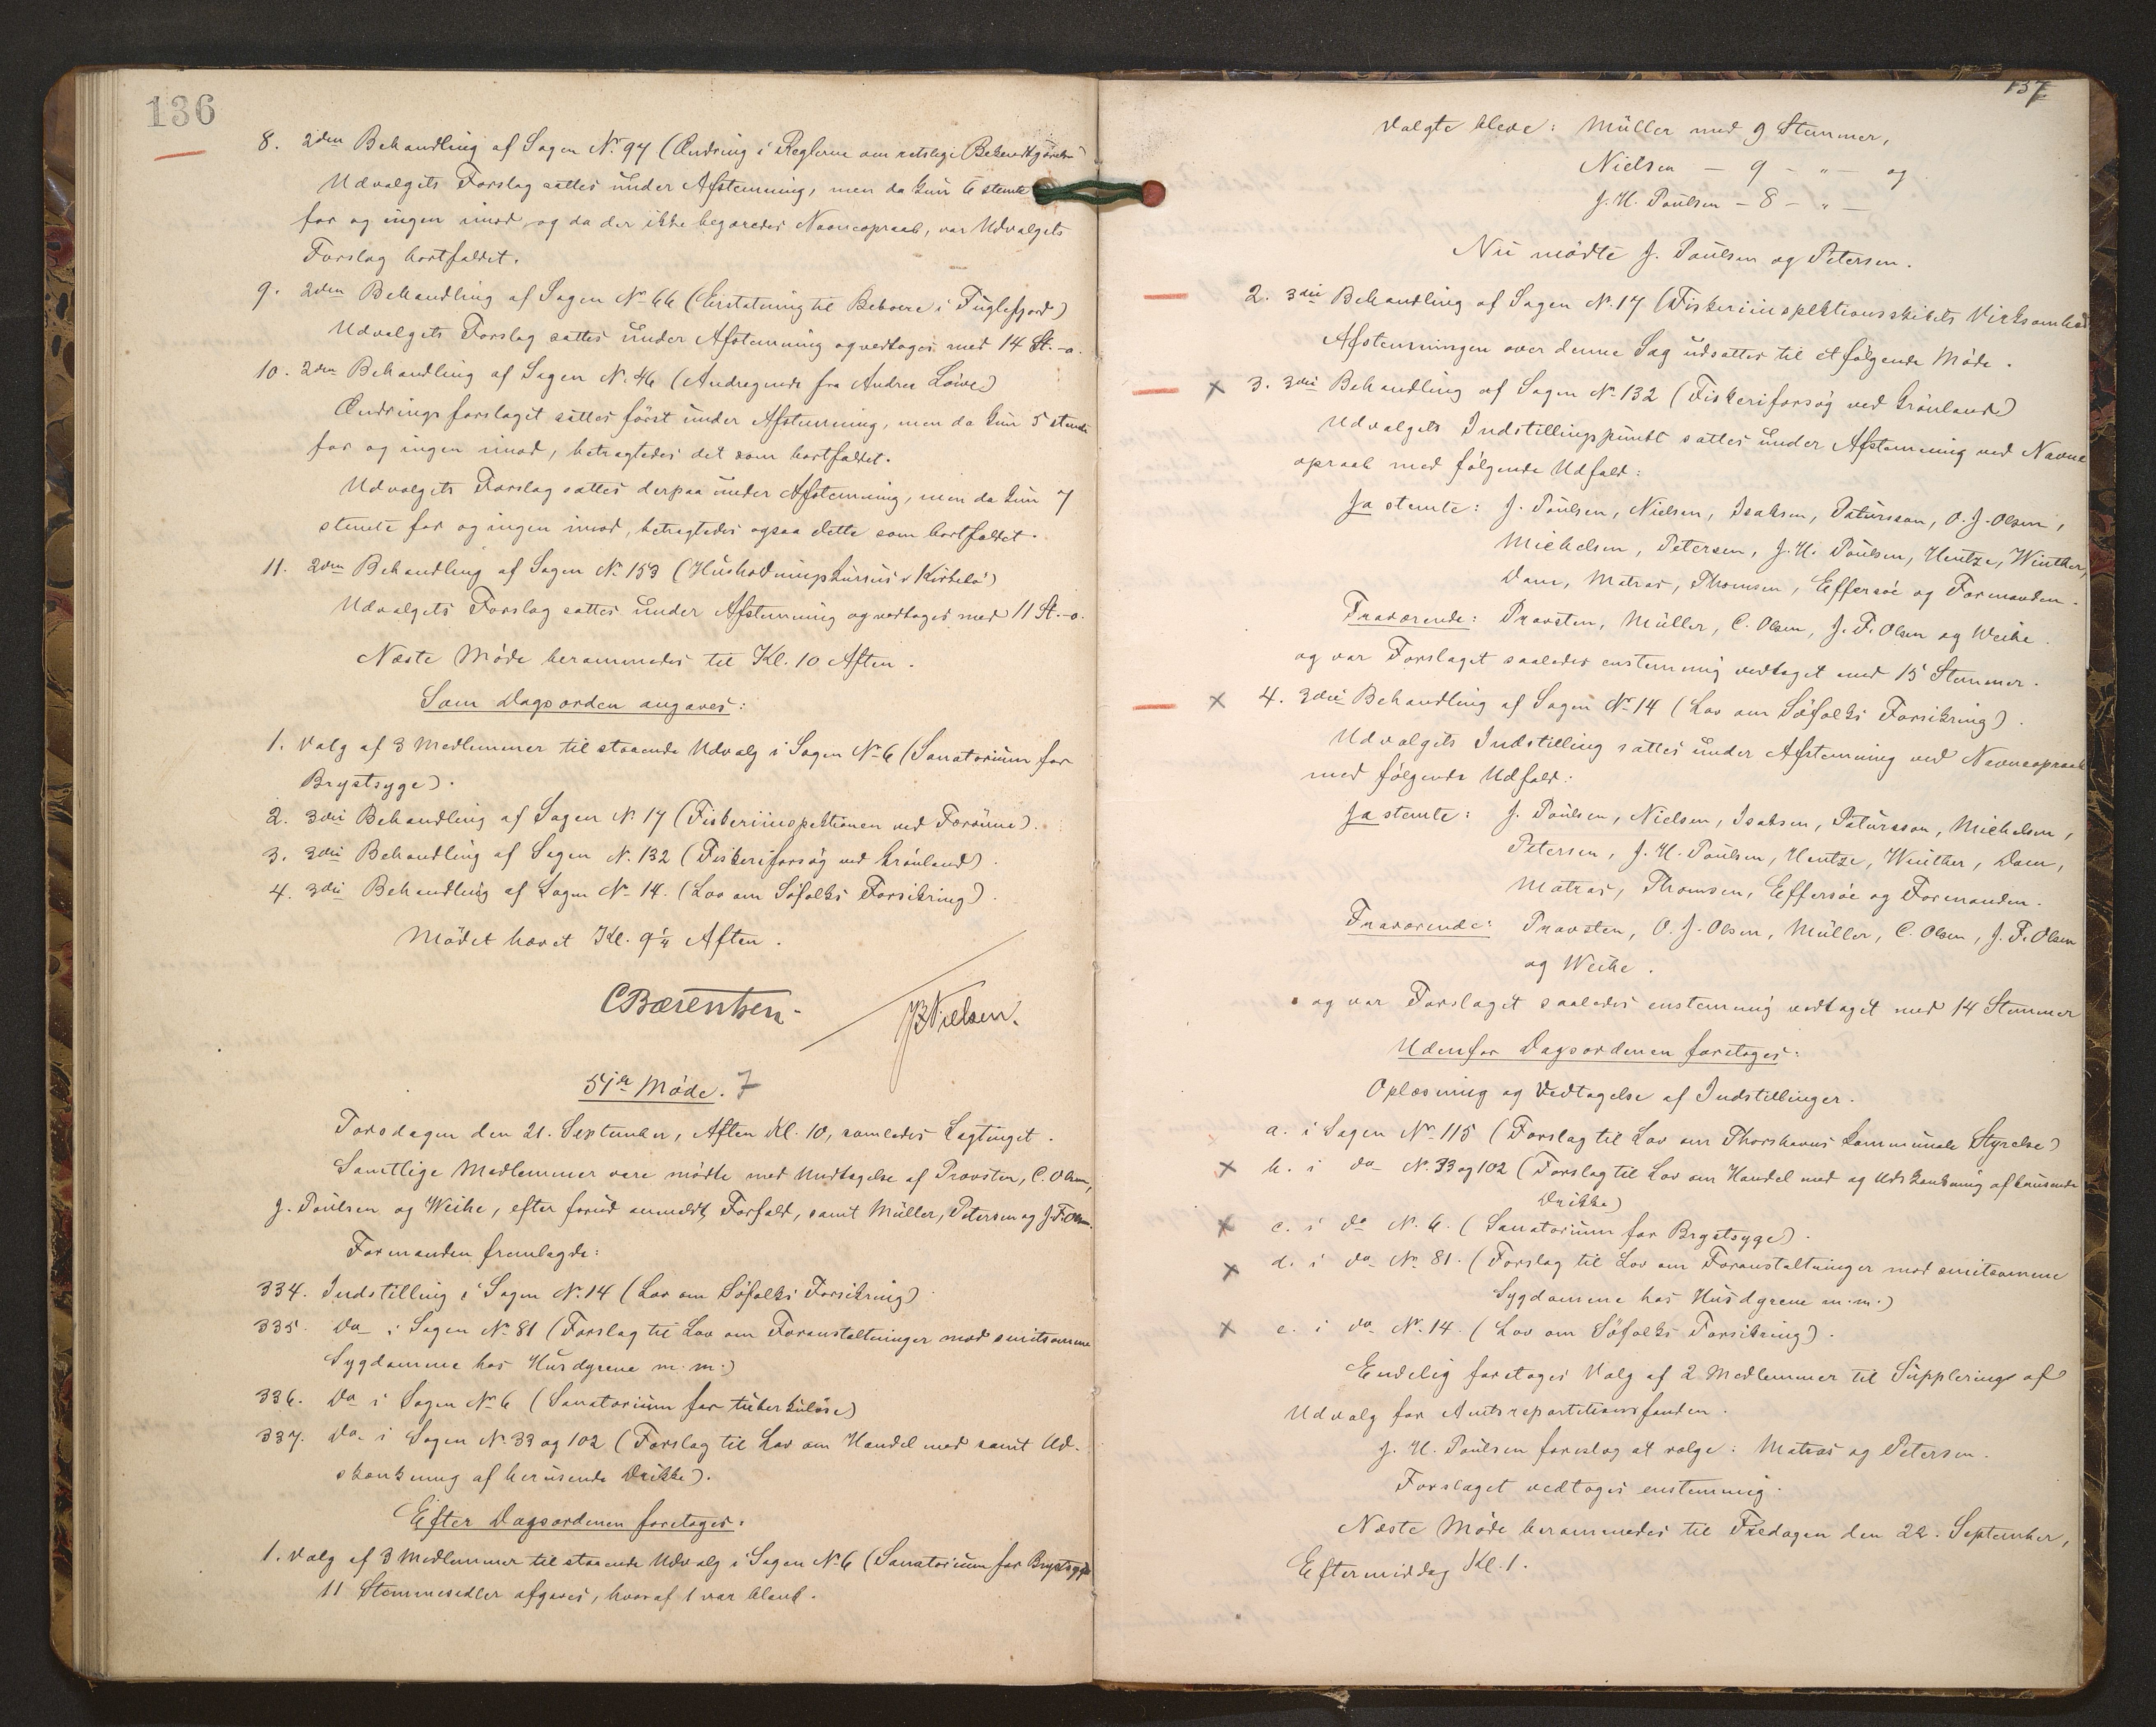 136
8. 2den Behandling af Sagen Nr. 94 (Ændring i Reglerne om retslige Bekendtgørelser
Udvalgets Forslag sattes under Afstemning, men da kun 6 stemte
for og ingen imod, og da der ikke begæredes Navneopraab, var Udvalgets
Forslag bortfaldet.
9. 2den Behandling af Sagen No 66 (Erstatning til Beboere i Fuglefjord)
Udvalgets Forslag sattes under Afstemning og vedtoges med 14 St. - o.
10. 2den Behandling af Sagen No. 46 (Andragende fra Andrea Løwe)
Ændringsforslaget sattes først under Afstemning, men da kun 5 stemte
for og ingen imod, betragtedes det som bortfaldet.
Udvalgets Forslag sattes derpaa under Afstemning, men da kun 7
stemte for og ingen imod, betragtedes ogsaa dette som bortfaldet.
11. 2den Behandling af Sagen No 153 (Husholdningskursus i Kirkebø)
Udvalgets Forslag sattes under Afstemning og vedtoges med 11 St. - o.
Næste Møde berammedes til Kl. 10 Aften.
Som Dagsorden angaves:
1. Valg af 3 Medlemmer til staaende Udvalg i Sagen No 6 (Sanatorium for
Brystsyge).
2. 3die Behandling af Sagen No 17 (Fiskeriinspektionen ved Færøerne).
3. 3die Behandling af Sagen No. 132 (Fiskeriforsøg ved Grønland).
4. 3die Behandling af Sagen No 14. (Lov om Søfolks Forsikring).
Mødet hævet Kl. 9¼ Aften.
CBærentsen.
Nielsen.
51de Møde. 7
Torsdagen den 21. September, Aften Kl. 10, samledes Lagtinget.
Samtlige Medlemmer vare mødte med Undtagelse af Provsten, C. Olsen,
J. Poulsen og Weihe, efter forud anmeldt Forfald, samt Müller, Petersen og J. F. Olsen.
Formanden fremlagde:
334. Indstilling i Sagen No. 14 (Lov om Søfolks Forsikring)
335. Do i Sagen No 81 (Forslag til Lov om Foranstaltninger mod smitsomme
Sygdomme hos Husdyrene m. m.)
336. Do i Sagen No 6 (Sanatorium for tuberkuløse)
337. Do. i Sagen No. 33 og 102 (Forslag til Lov om Handel med samt Ud-
skænkning af berusende Drikke).
Efter Dagsordenen foretoges:
1. Valg af 3 Medlemmer til staaende Udvalg i Sagen No 6 (Sanatorium for Brystsyge
11 Stemmesedler afgaves, hvoraf 1 var blank.
137
Valgte bleve: Müller med 9 Stemmer,
Nielsen - 9 - " - og
J. H. Poulsen - 8 - " -
Nu mødte J. Poulsen og Petersen.
2. 3die Behandling af Sagen No. 17 (Fiskeriinspektionsskibets Virksomhed
Afstemningen over denne Sag udsattes til et følgende Møde.
3. 3die Behandling af Sagen No. 132 (Fiskeriforsøg ved Grønland)
Udvalgets Indstillingspunkt sattes under Afstemning ved Navne
opraab med følgende Udfald:
Ja stemte: J. Poulsen, Nielsen, Isaksen, Patursson, O. J. Olsen,
Michelsen, Petersen, J. H. Poulsen, Hentze, Winther,
Dam, Matras, Thomsen, Effersøe og Formanden.
Fraværende: Provsten, Müller, C. Olsen, J. F. Olsen og Weihe.
og var Forslaget saaledes enstemmig vedtaget med 15 Stemmer.
4. 3die Behandling af Sagen No 14 (Lov om Søfolks Forsikring).
Udvalgets Indstilling sattes under Afstemning ved Navneopraab
med følgende Udfald:
Ja stemte: J. Poulsen, Nielsen, Isaksen, Patursson, Michelsen,
Petersen, J. H. Poulsen, Hentze, Winther, Dam,
Matras, Thomsen, Effersøe og Formanden.
Fraværende: Provsten, O. J. Olsen, Müller, C. Olsen, J. F. Olsen
og Weihe.
og var Forslaget saaledes enstemmig vedtaget med 14 Stemmer
Udenfor Dagsordenen foretoges:
Oplæsning og Vedtagelse af Indstillinger.
a. i Sagen No 115 (Forslag til Lov om Thorshavns kommunale Styrelse)
b. i do No. 33 og 102 (Forslag til Lov om Handel med og Udskænkning af berusende
Drikke)
c. i do No. 6. (Sanatorium for Brystsyge).
d. i do No 81. (Forslag til Lov om Foranstaltninger mod smitsomme
Sygdomme hos Husdyrene m. m.)
e. i do No. 14. (Lov om Søfolks Forsikring).
Endelig foretoges Valg af 2 Medlemmer til Supplering af
Udvalg for Amtsrepartitionsfonden.
J. H. Poulsen foreslog at vælge: Matras og Petersen.
Forslaget vedtoges enstemmig.
Næste Møde berammedes til Fredagen den 22. September,
Eftermiddag Kl. 1.